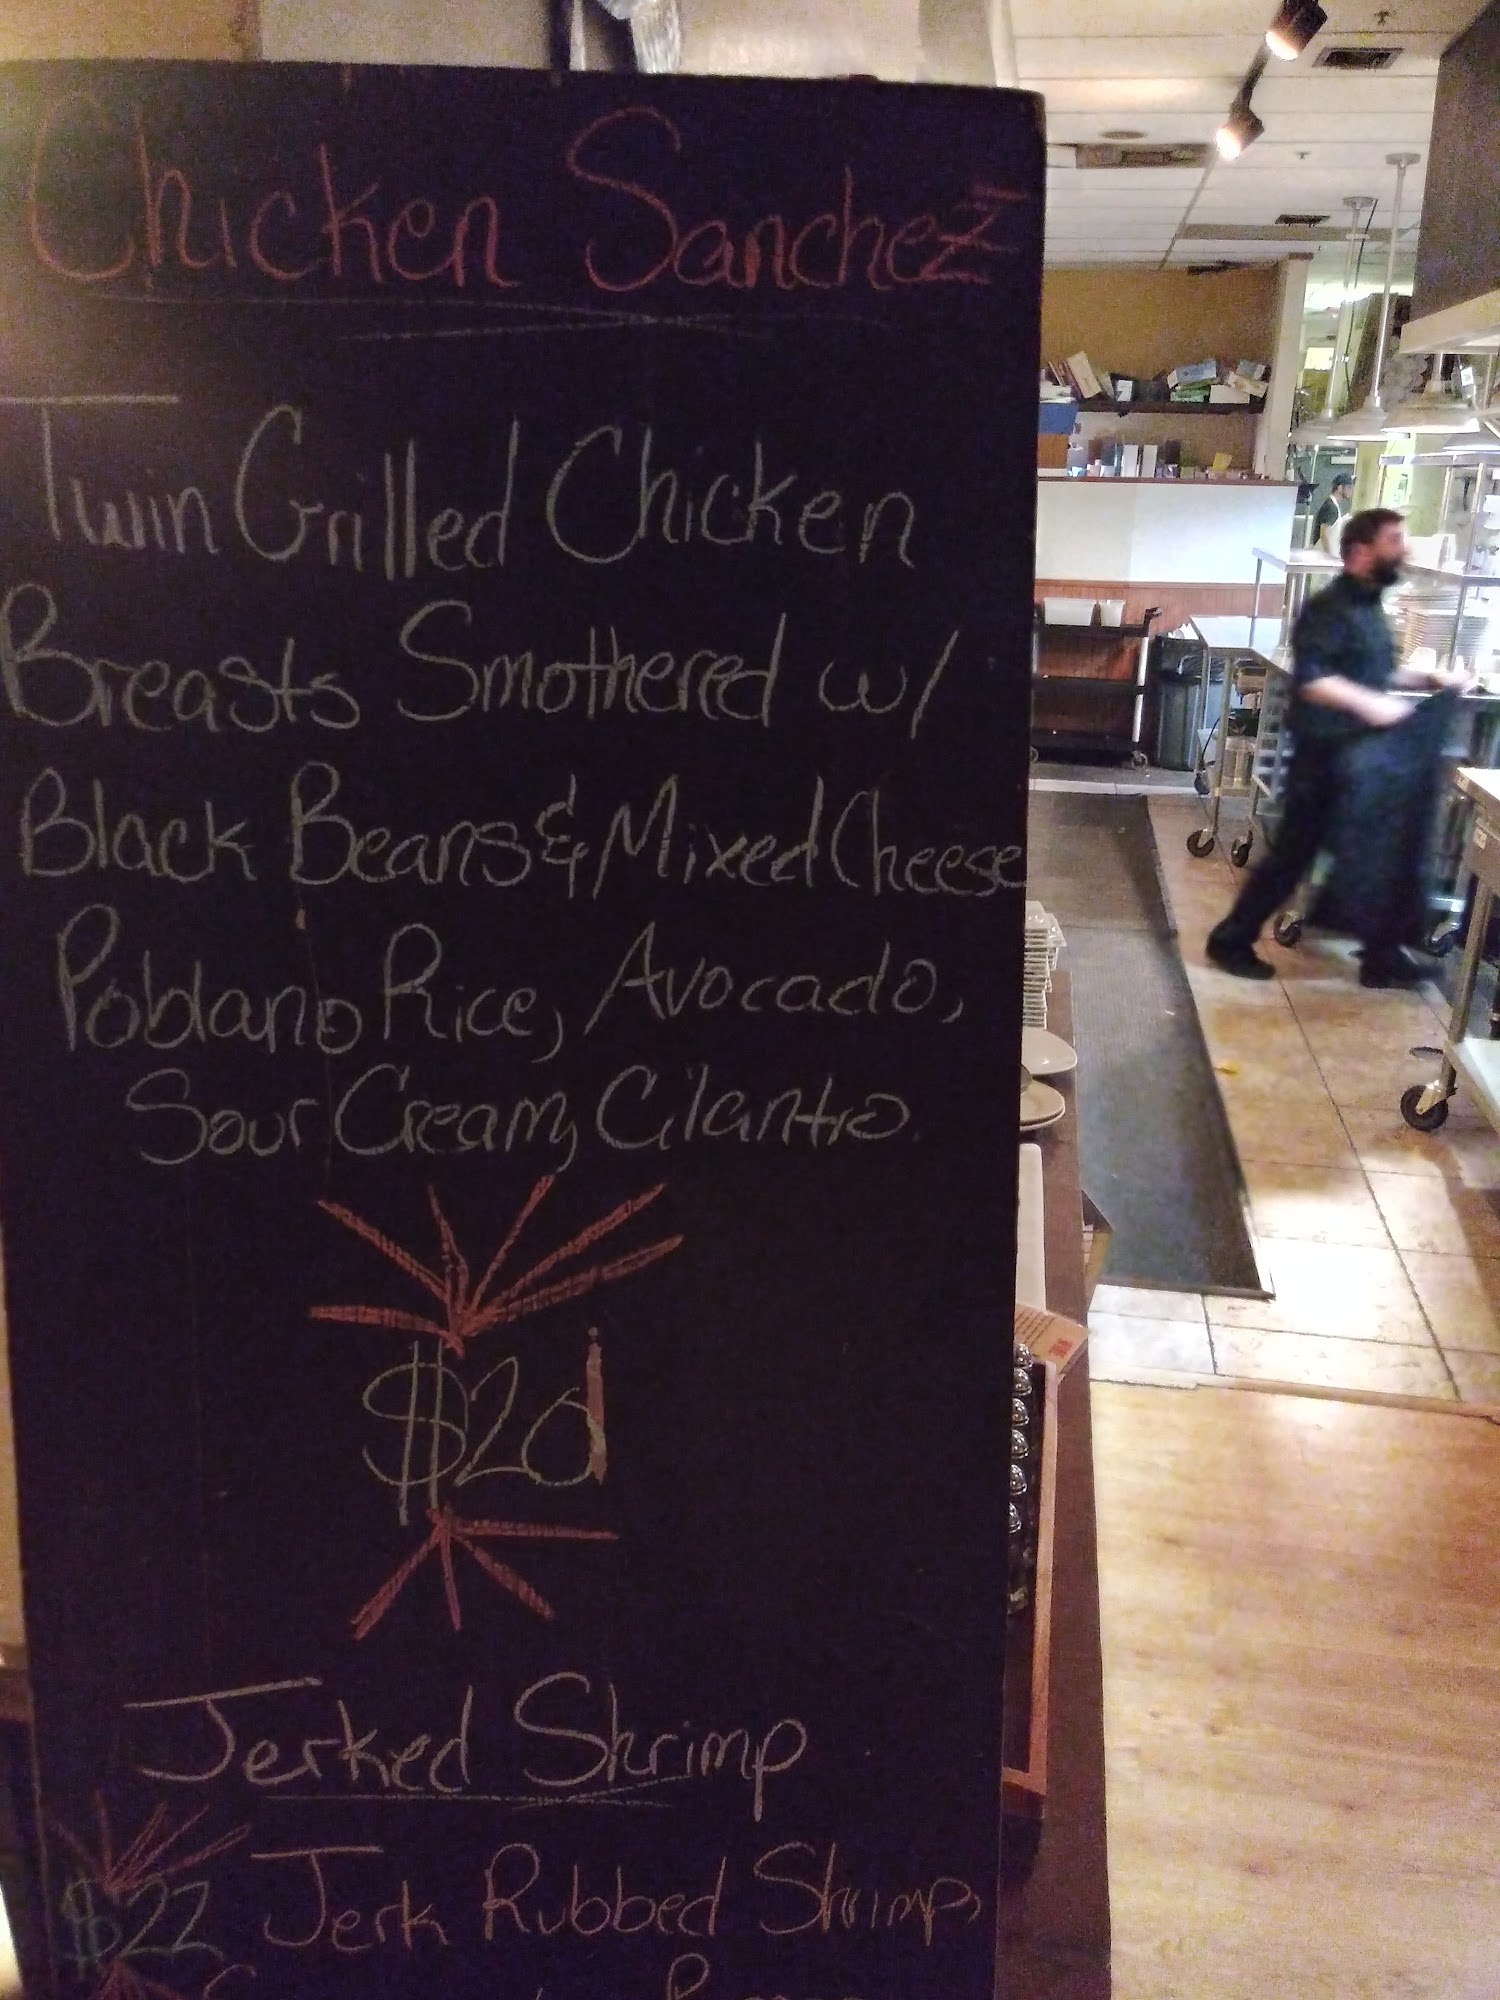 Chicken Sanchez
Twin Grilled Chicken
Breasts Smothered w/
Black Beans & Mixed Cheese
Poblano Rice, Avocado,
Sour Cream, Cilantro
$20
Jerked Shrimp
$22 Jerk Rubbed Shrimp,